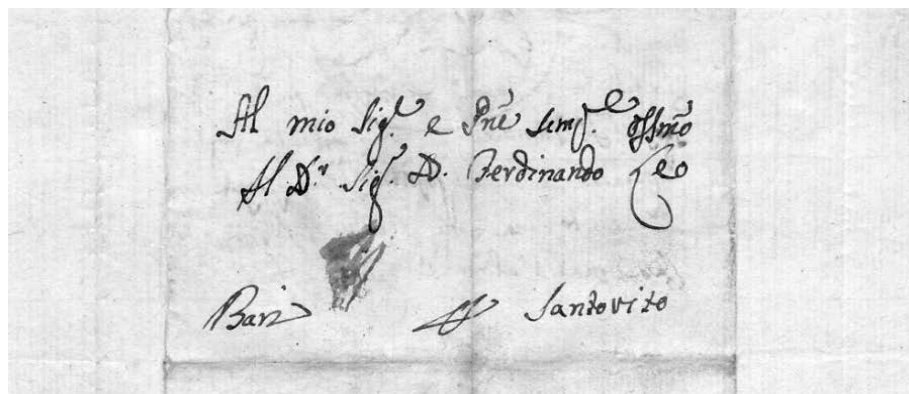 Al mio Sig.r e Pne semp.e Ossmo
Al D.r Sig.r D. Ferdinando Leo
Bari Santovito